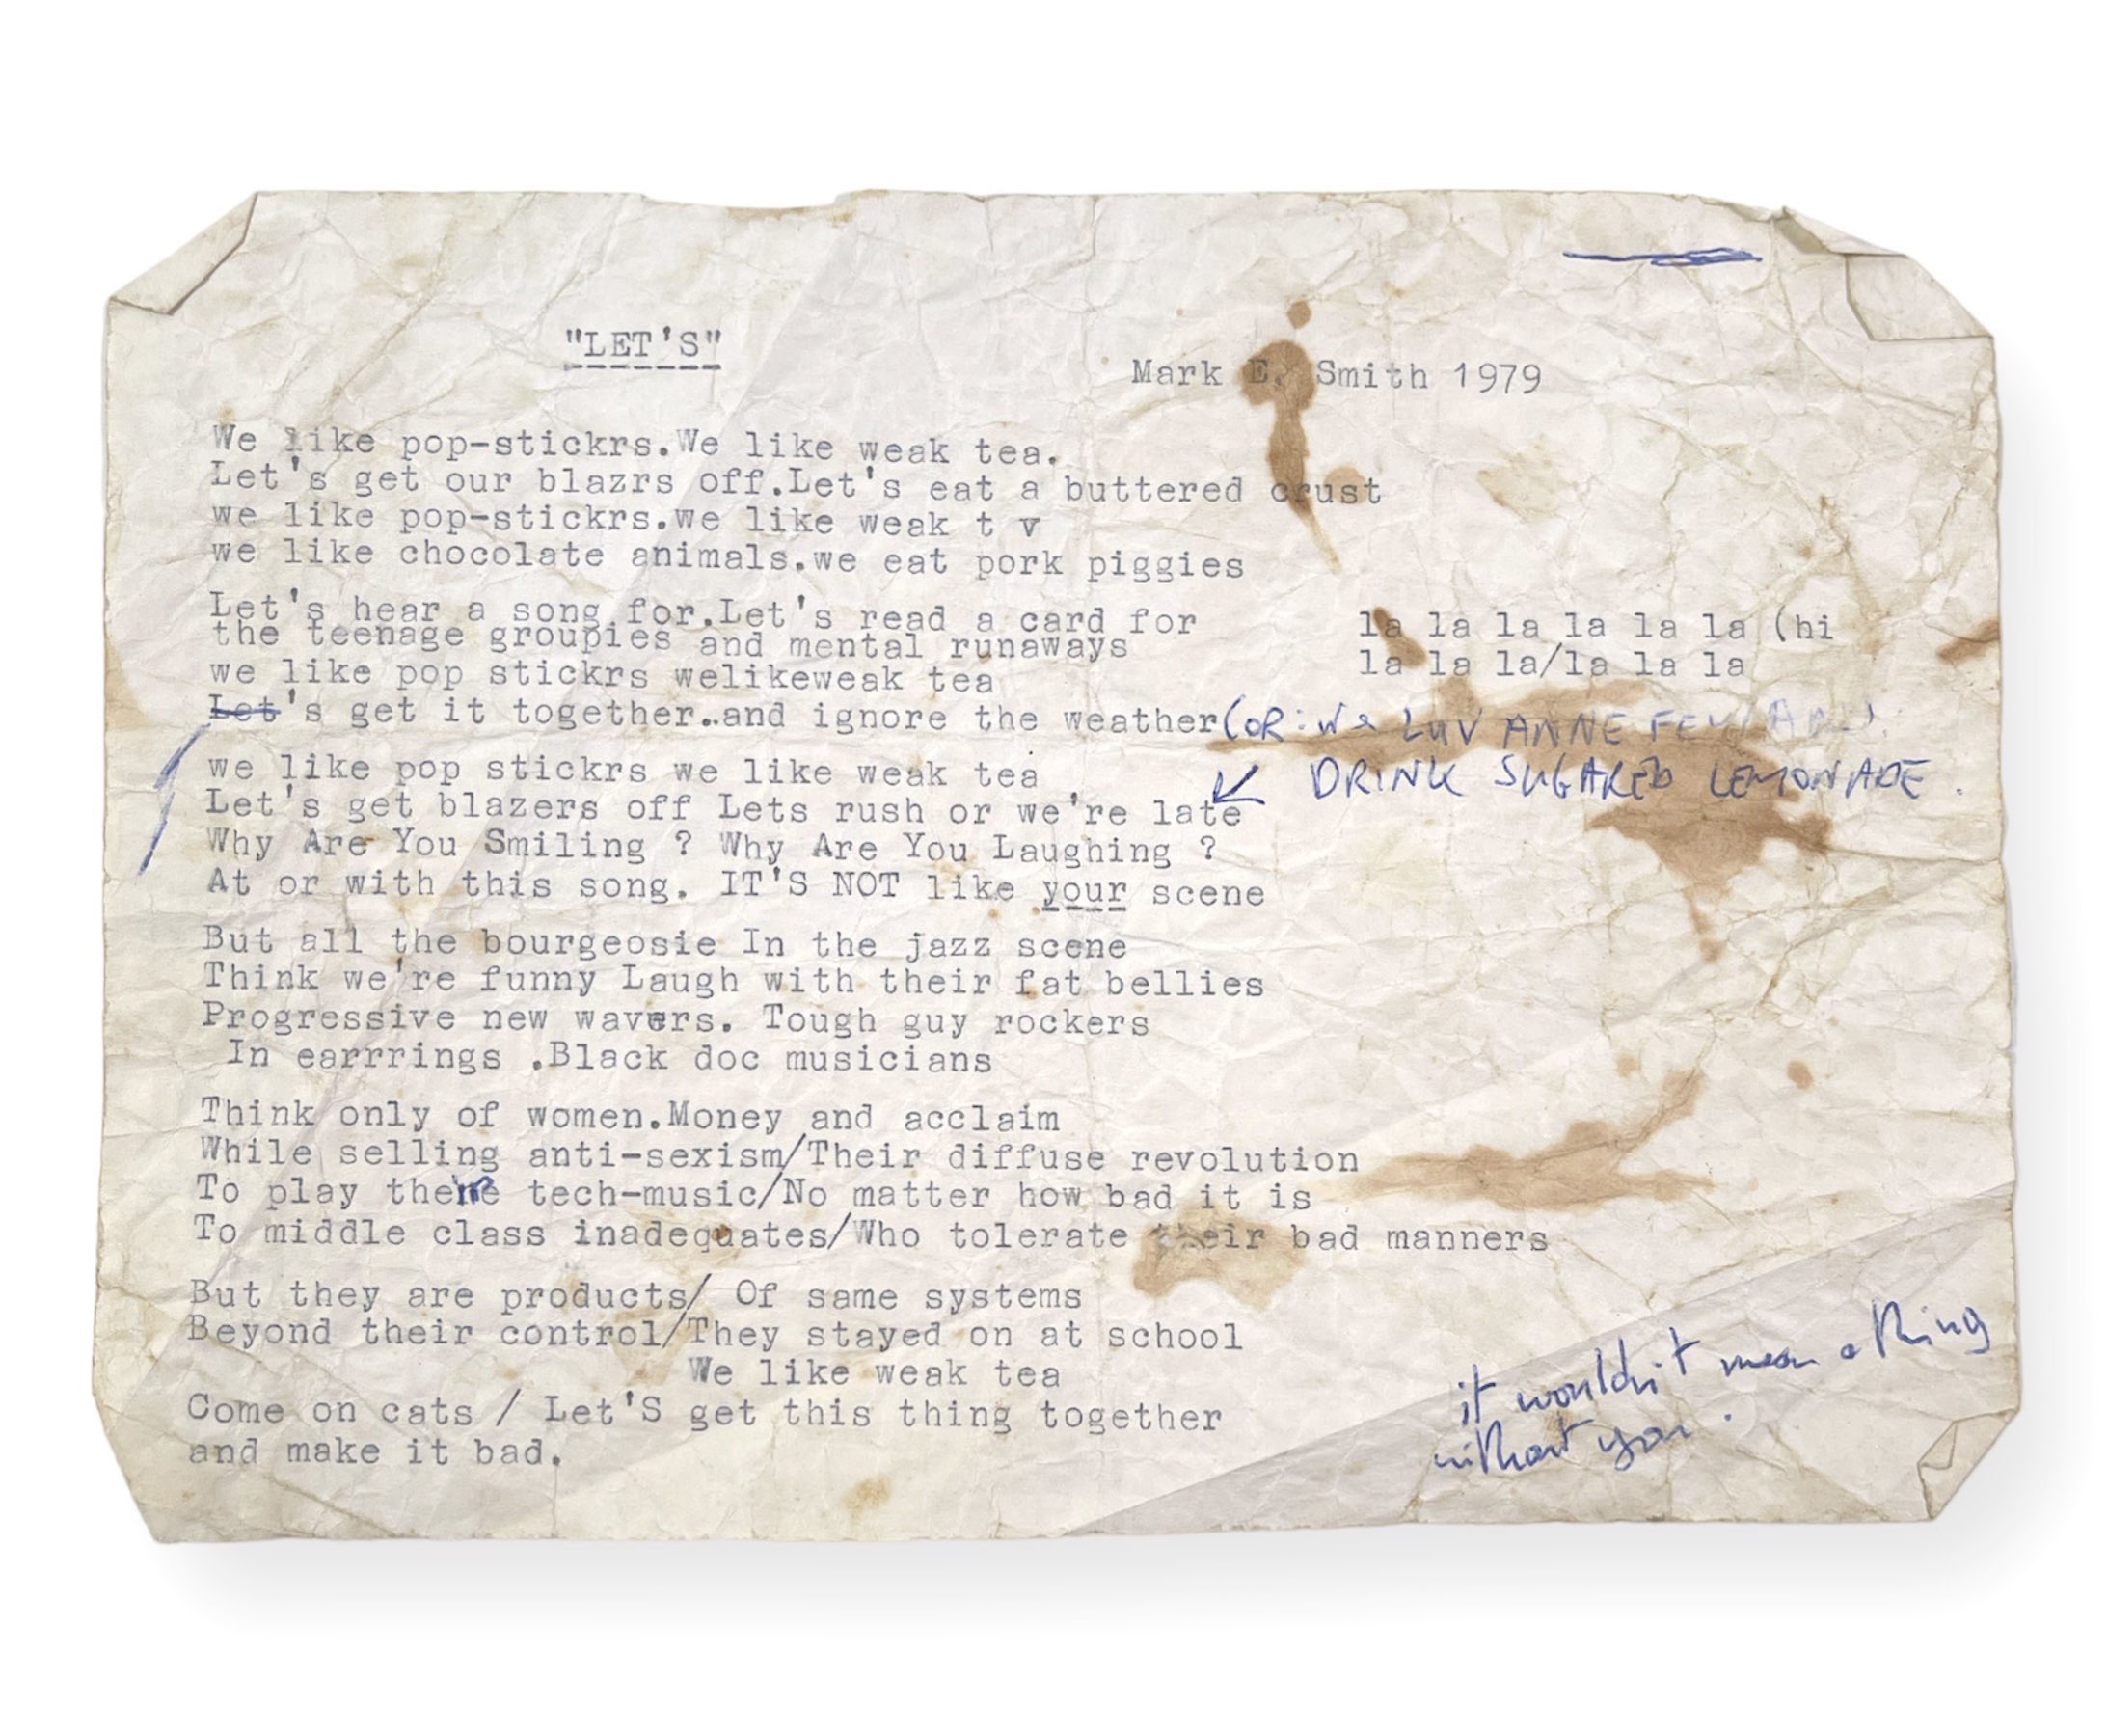 "LET'S"
Mark E. Smith 1979
We like pop-stickrs.We like weak tea.
Let's get our blazrs off.Let's eat a buttered crust
we like pop-stickrs.we like weak t v
we like chocolate animals.we eat pork piggies
Let's hear a song for.Let's read a card for
the teenage groupies and mental runaways
we like pop stickrs welikeweak tea
Let's get it together..and ignore the weather
la la la la la la (hi
la la la/la la la
(OR: We LUV ANNE
DRINK SUGARED LEMONADE.
we like pop stickrs we like weak tea
Let's get blazers off Lets rush or we're late
Why Are You Smiling ? Why Are You Laughing ?
At or with this song. IT'S NOT like your scene
But all the bourgeosie In the jazz scene
Think we're funny Laugh with their fat bellies
Progressive new wavers. Tough guy rockers
In earrrings .Black doc musicians
Think only of women.Money and acclaim
While selling anti-sexism/Their diffuse revolution
To play their tech-music/No matter how bad it is
To middle class inadequates/Who tolerate their bad manners
But they are products/ Of same systems
Beyond their control/They stayed on at school
We like weak tea
Come on cats / Let'S get this thing together
and make it bad.
it wouldn't mean a thing
without you.